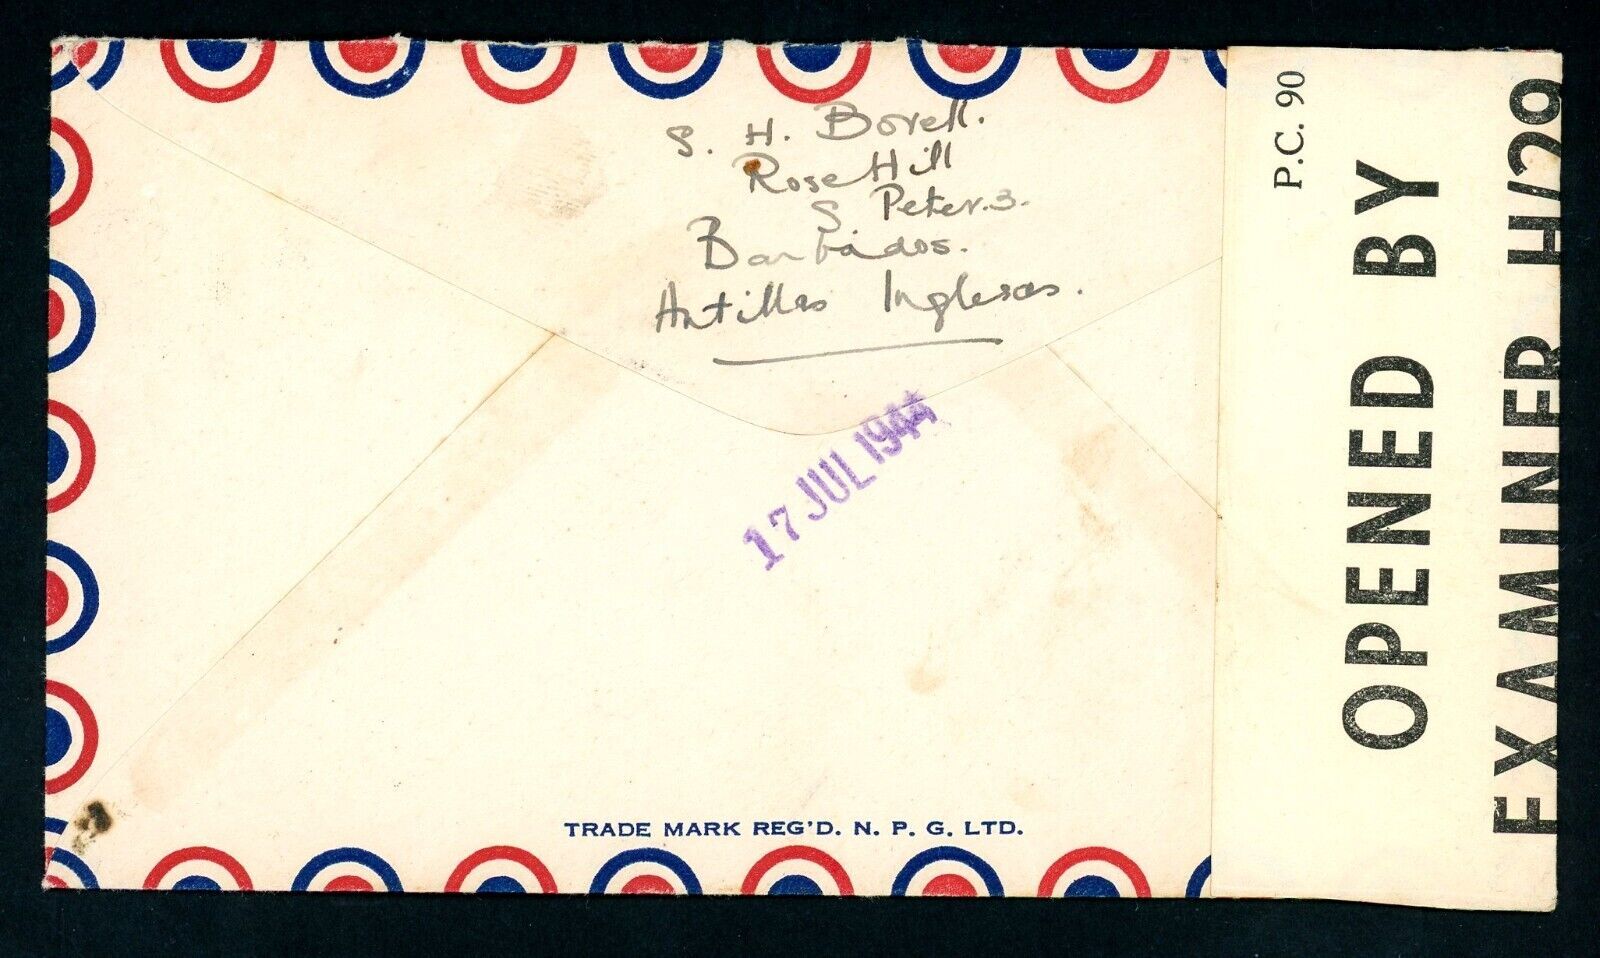 S. H. Borell.
Rose Hill
S Peter.3.
Barbados.
Antillas Inglesas.
17 JUL 1944
TRADE MARK REG'D. N. P. G. LTD.
P.C. 90
OPENED BY
EXAMINER H/29